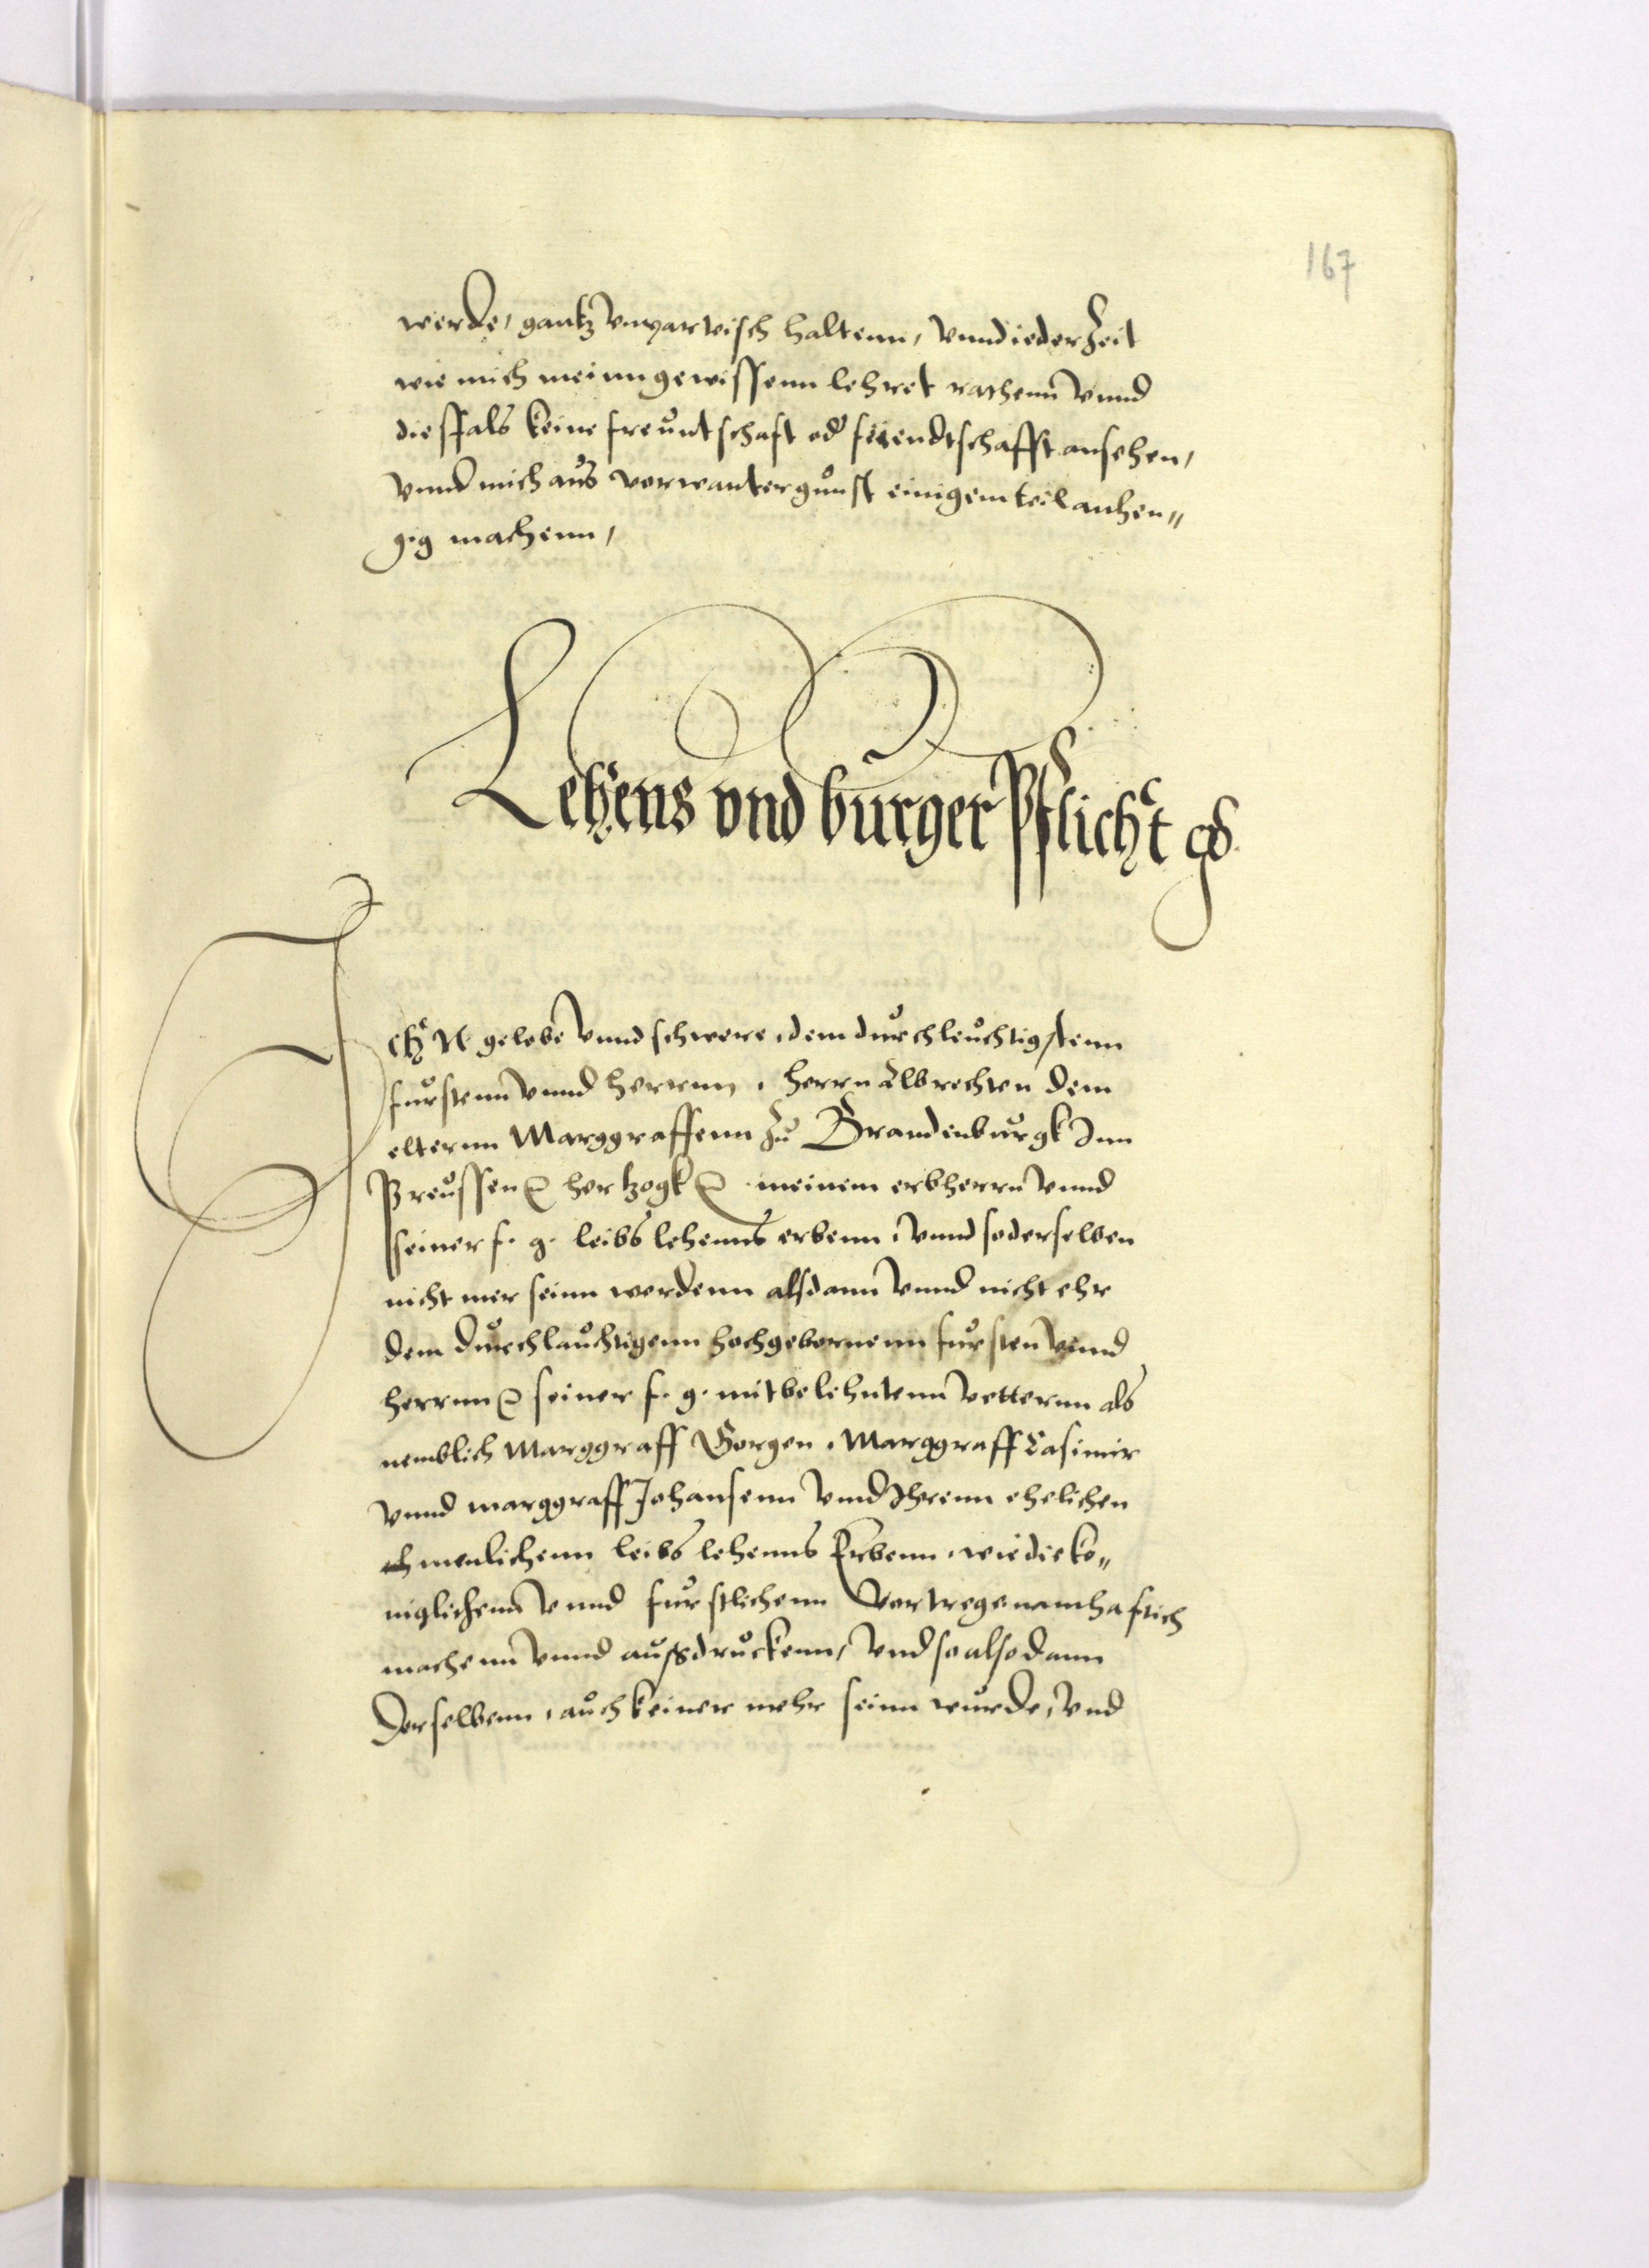 167
werde, gantz vnparteisch haltenn, vnnd ieder Zeit
wie mich meinn gewissenn lehret rathenn vnnd
diesfals keine freuntschaft oder feiendtschafft ansehen,
vnnd mich aus verwanter gunst einigem teil anhen„
gig machenn,
Lehens vnd burger Pflicht
Ich N. gelobe vnnd schwere, dem durchleuchtigstenn
furstenn vnnd herrenn, herrn Albrechten dem
elternn Marggraffenn Zu Brandenburgk Inn
Preussen hertzogk meinem erbherrn vnnd
seiner f. g. leibs lehenns erbenn, vnnd so derselben
nicht mer seinn werdenn alsdann vnnd nicht ehr
dem durchlauchtigenn hochgebornenn fursten vnnd
herrnn seiner f. g. mitbelehntenn vetternn als
nemblich Marggraff Gorgen, Marggraff Casimir
vnnd marggraff Johansenn vnnd Ihrenn ehelichen
menlichenn leibs lehenns Erbenn, wie die ko„
niglichenn vnnd furstlichenn Vertrege namhaftich
machenn vnnd ausdruckenn, vnd so alsodann
derselbenn, auch keiner mehr seinn wurde, vnd